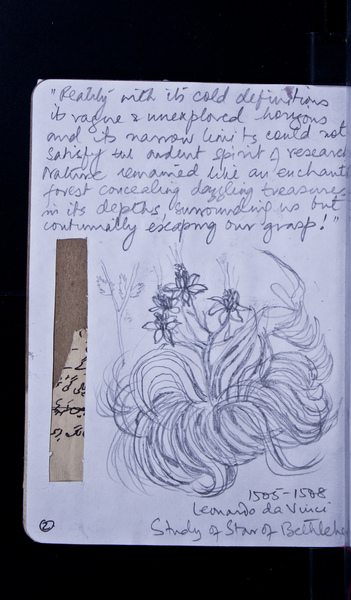 "Reality with its cold definitions
its vague & unexplored horizons
and its narrow limits could not
satisfy the ardent spirit of research
Nature remained like an enchant
forest concealing dazzling treasures
in its depths, surrounding us but
continually escaping our grasp!"
1505-1508
Leonardo da Vinci
Study of Star of Bethlehe
2